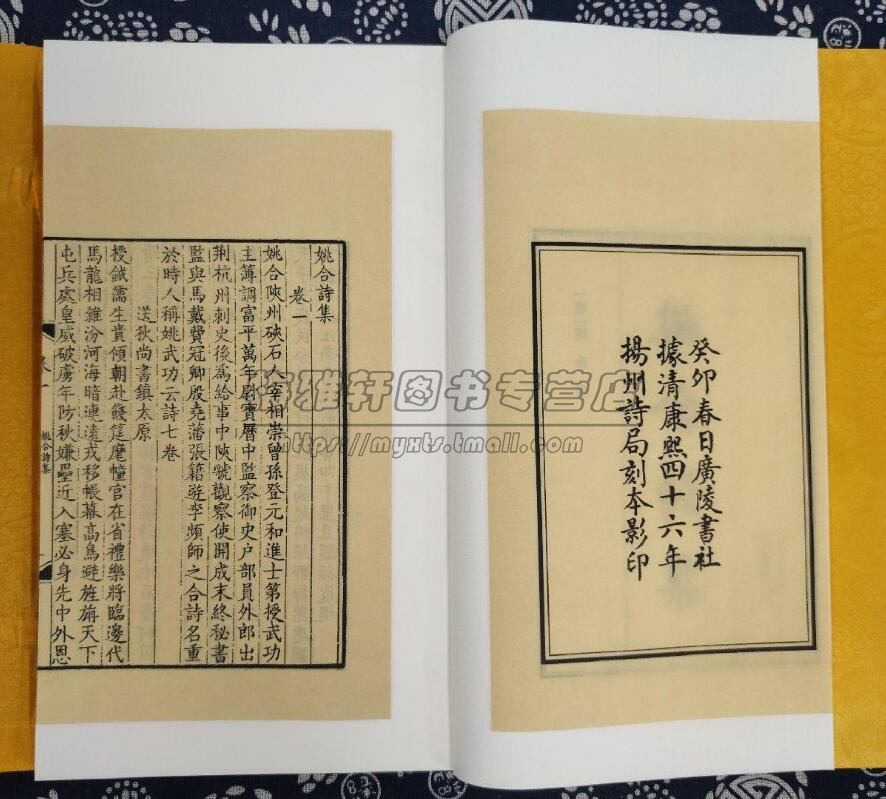 癸卯春日廣陵書社
據清康熙四十六年
揚州詩局刻本影印
姚合詩集
卷一
姚合陝州硤石人宰相崇曾孫登元和進士第授武功
主簿調富平萬年尉寶曆中監察御史户部員外郎出
荆杭州刺史後爲給事中陝虢觀察使開成末終秘書
監與馬戴費冠卿殷堯藩張籍遊李頻師之合詩名重
於時人稱姚武功云詩七卷
送狄尚書鎮太原
授鉞儒生貴傾朝赴餞筵麾幢官在省禮樂將臨邊代
馬龍相雜汾河海暗連遠戎移帳幕高鳥避旌旃天下
屯兵處皇威破虜年防秋嫌壘近入塞必身先中外恩
卷一
姚合詩集
雅轩书专营店
https://myxts.tmall.com